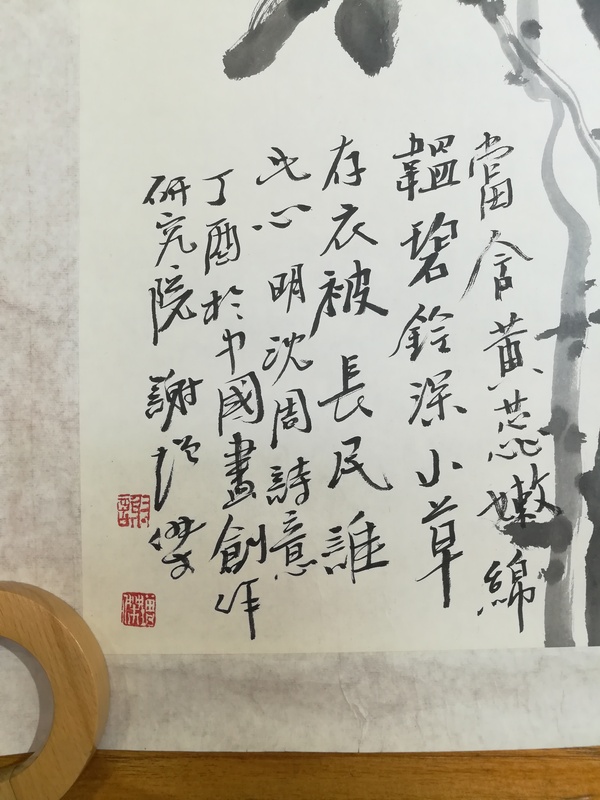 當含黃蕊嫩綿
韞碧鈴深小草
存衣被長民誰
此心 明沈周詩意
丁酉於中國畫創作
研究院 謝增傑
謝
增傑